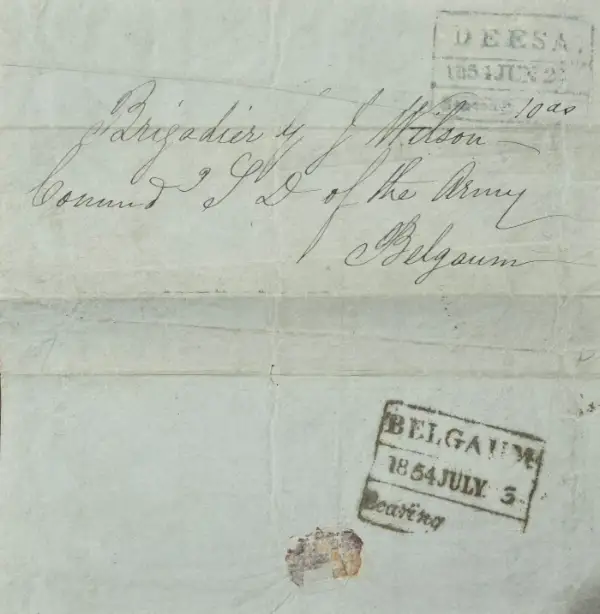 DEESA
1854 JUN 2
Bearing 10 as
Brigadier J Wilson
Command S D of the Army
Belgaum
BELGAUM
1854 JULY 3
Bearing